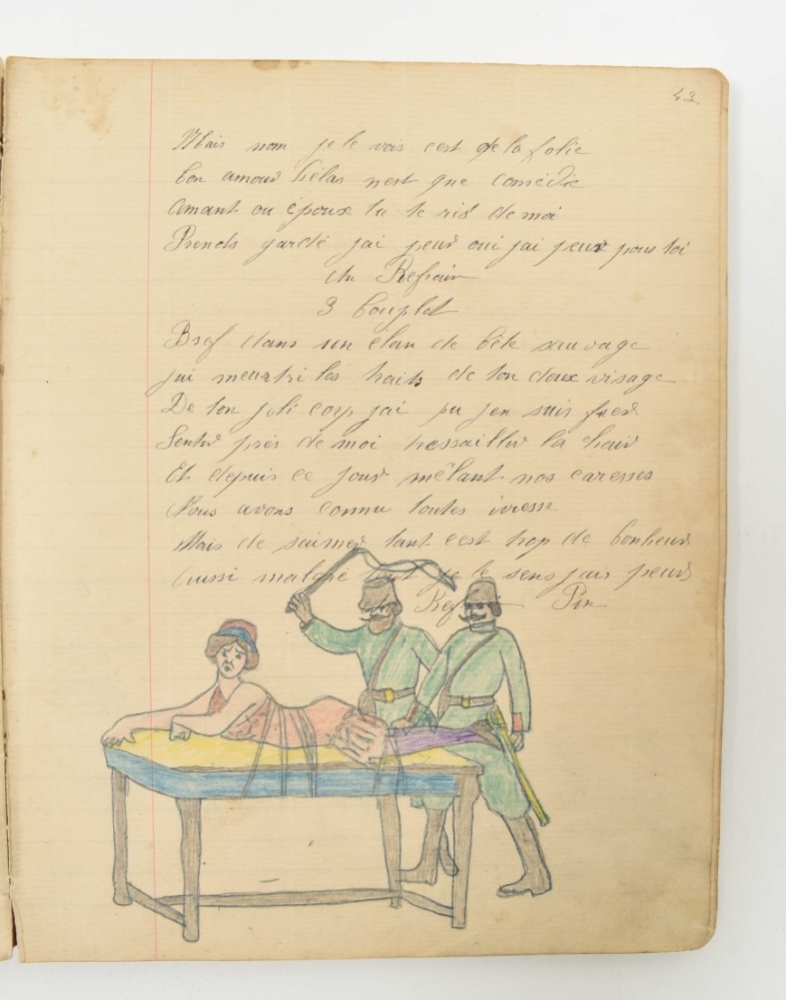 43.
Mais non je le vois cest de la folie
Ton amour hélas nest que comédie
Amant ou époux tu te ris de moi
Prends garde jai peur oui jai peur pour toi
Au Refrain
3 Couplet
Bref dans un élan de bête sauvage
jai meurtri les traits de ton doux visage
De ton joli corp jai pu jen suis fier
Sentir près de moi tressaillir la chair
Et depuis ce jour mêlant nos caresses
Nous avons connu toutes ivresse
Mais de saimer tant cest trop de bonheur
Aussi malgré tout je le sens jais peur
Refrain Fin